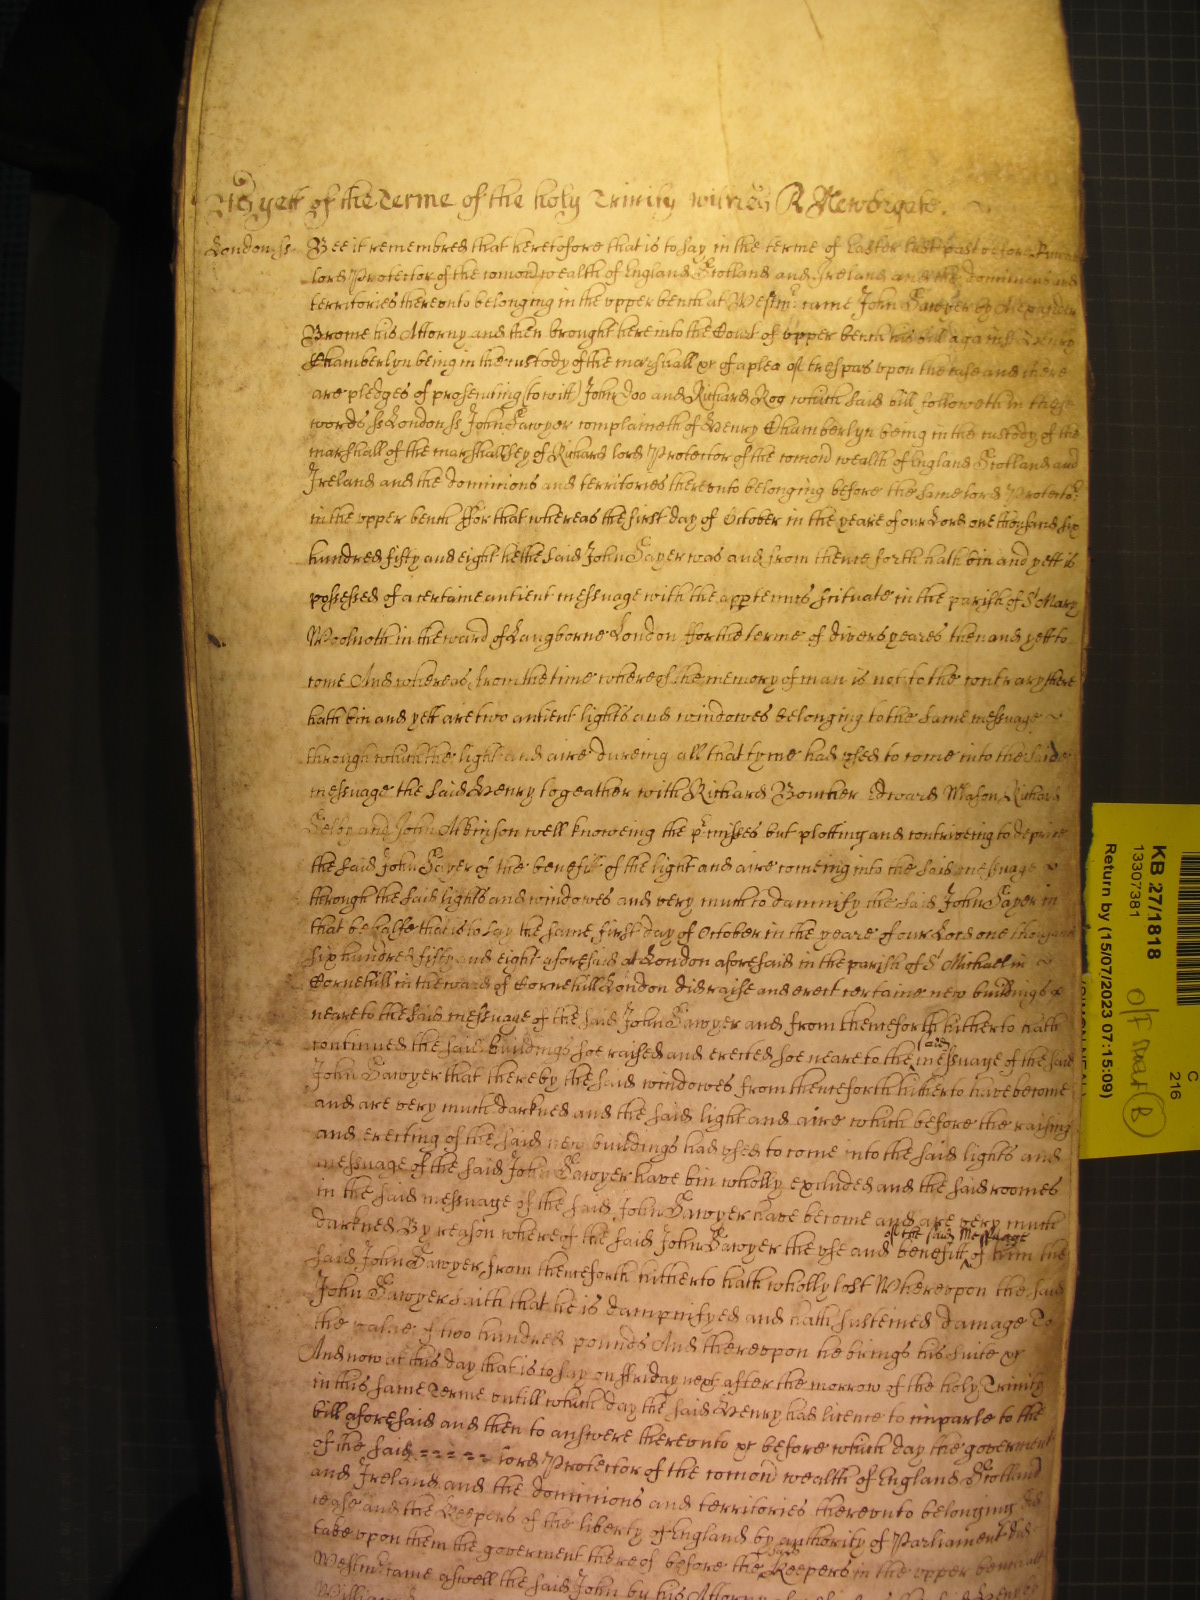 As yett of the Terme of the holy Trinity witnes R Newdigate.
London ss. Bee it remembred that heretofore that is to say in the terme of Easter last past before Richard
lord Protector of the comon wealth of England Scotland and Ireland and the dominions and
territories thereunto belonging in the upper bench at Westmr. came John Sawyer by Alexander
Brome his Attorny and then brought here into the Court of upper bench his bill against Henry
Chamberlyn being in the custody of the marshall &c of a plea of trespas upon the case and there
are pledges of prosecuting (to witt) John Doo and Richard Roo which said bill followeth in these
words ss London ss John Sawyer complaineth of Henry Chamberlyn being in the custody of the
marshall of the marshallsey of Richard lord Protector of the comon wealth of England Scotland and
Ireland and the dominions and territories thereunto belonging before the same lord Protector
in the upper bench ffor that whereas the first day of October in the yeare of our Lord one thousand six
hundred fifty and eight hee the said John Sayer was and from thence forth hath bin and yett is
possessed of a certaine antient messuage with the apptennts scituate in the parish of St Mary
Woolnoth in the ward of Langborne London ffor the terme of divers yeares then and yett to
come And whereas from the time whereof the memory of man is not to the contrary there
hath bin and yett are two antient lights and windowes belonging to the same messuage
through which the light and aire dureing all that tyme had used to come into the said
messuage the said Henry togeather with Richard Bowcher Edward Mason Richard
Selby and John Atkinson well knoweing the pmisses but plotting and contriveing to deprive
the said John Sayer of the benefitt of the light and aire comeing into the said messuage
through the said lights and windowes and very much to damnify the said John Sayer in
that behalfe that is to say the same first day of October in the yeare of our Lord one thousand
six hundred fifty and eight aforesaid at London aforesaid in the parish of St Michael in
Cornehill in the ward of Cornehill London did raise and erect certaine new buildings
neare to the said messuage of the said John Sawyer and from thenceforth hitherto hath
continued the said buildings soe raised and erected soe neare to the said messuage of the said
John Sawyer that thereby the said windowes from thenceforth hitherto have become
and are very much darkned and the said light and aire which before the raising
and erecting of the said new buildings had used to come into the said lights and
messuage of the said John Sawyer have bin wholly excluded and the said roomes
in the said messuage of the said John Sawyer have become and are very much
darkned By reason whereof the said John Sawyer the use and benefitt of the said Messuage of him the
said John Sawyer from thenceforth hitherto hath wholly lost Whereupon the said
John Sawyer saith that he is dampnifyed and hath susteined damage To
the value of two hundred pounds And thereupon he brings his suite &c
And now at this day that is to say on ffriday next after the morrow of the holy Trinity
in this same Terme untill which day the said Henry had licence to imparle to the
bill aforesaid and then to answere thereunto &c before which day the goverment
of the said ===== lord Protector of the comon wealth of England Scotland
and Ireland and the dominions and territories thereunto belonging did
cease and the Keepers of the liberty of England by authority of Parliament did
take upon them the goverment thereof before the said Keepers in the upper bench att
Westmr. came aswell the said John by his Attorny
C
216
KB 27/1818
13307381
Return by (15/07/2023 07:15:09)